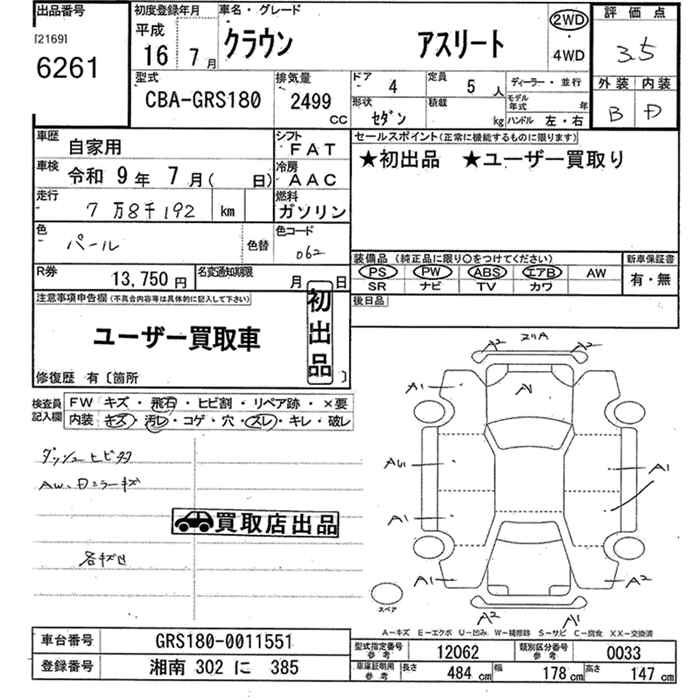 出品番号 初度登録年月 車名・グレード 2WD 評価点
[2169] 平成 クラウン アスリート 4WD 3.5
6261 16 7月
型式 排気量 ドア 4 定員 5人 ディーラー・並行 外装 内装
CBA-GRS180 2499 CC 形状 セダン 積載 kg モデル年式 年 B D
ハンドル 左・右
車歴 自家用 シフト FAT セールスポイント(正常に機能するものに限ります)
車検 令和 9年 7月( 日) 冷房 AAC ★初出品 ★ユーザー買取り
走行 7万8千192 km 燃料 ガソリン
色 パール 色替 色コード 062
装備品(純正品に限り○をつけてください) 新車保証書
PS PW ABS エアB AW 有・無
R券 13,750円 名変通知期限 月 日 SR ナビ TV カワ
注意事項申告欄(不具合内容等は具体的に記入して下さい) 初出品 後日品
ユーザー買取車
修復歴 有〔箇所 〕
検査員記入欄 FW キズ・飛石・ヒビ割・リペア跡・×要
内装 キズ・汚レ・コゲ・穴・スレ・キレ・破レ
ダッシュヒビ
AW、ミラーキズ
買取店出品
各キズ
A2 A2
A1 A1 A1
A1
A1
A1 A2
スペア
A2 A1
A-キズ E-エクボ U-凹み W-補修跡 S-サビ C-腐食 XX-交換済
車台番号 GRS180-0011551 型式指定番号 参考 12062 類別区分番号 参考 0033
登録番号 湘南 302 に 385 車庫証明用 参考 長さ 484cm 幅 178cm 高さ 147cm